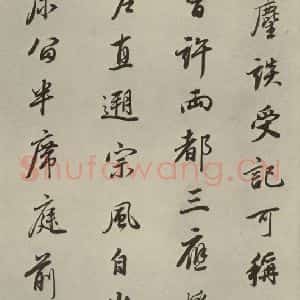 麈談受記可稱
許兩都三應
直遡宗風自
公半席庭前
Shufawang.Cn